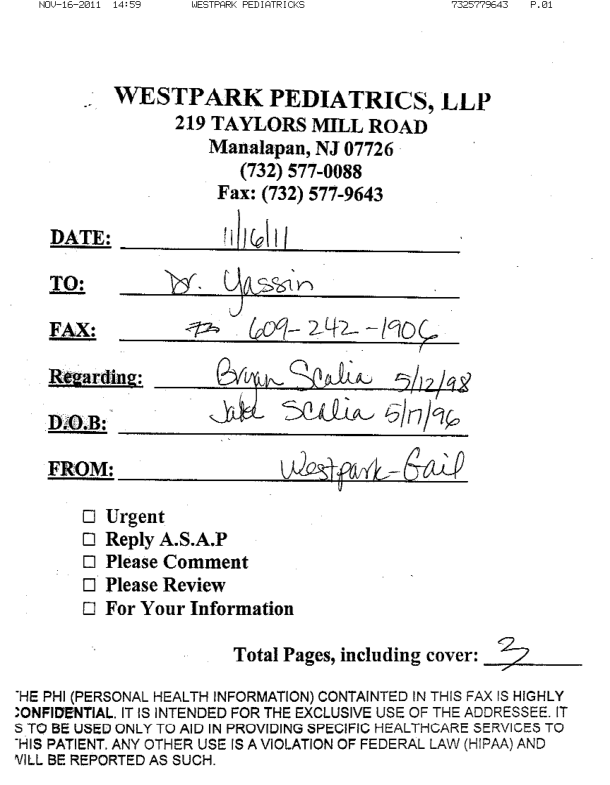 NOV-16-2011 14:59 WESTPARK PEDIATRICKS 7325779643 P.01
WESTPARK PEDIATRICS, LLP
219 TAYLORS MILL ROAD
Manalapan, NJ 07726
(732) 577-0088
Fax: (732) 577-9643
DATE: 11/16/11
TO: Dr. Yassin
FAX: 609-242-1906
Regarding: Bryan Scalia 5/12/98
D.O.B: Jake Scalia 5/17/96
FROM: Westpark-Gail
☐ Urgent
☐ Reply A.S.A.P
☐ Please Comment
☐ Please Review
☐ For Your Information
Total Pages, including cover: 3
THE PHI (PERSONAL HEALTH INFORMATION) CONTAINTED IN THIS FAX IS HIGHLY
CONFIDENTIAL. IT IS INTENDED FOR THE EXCLUSIVE USE OF THE ADDRESSEE. IT
S TO BE USED ONLY TO AID IN PROVIDING SPECIFIC HEALTHCARE SERVICES TO
THIS PATIENT. ANY OTHER USE IS A VIOLATION OF FEDERAL LAW (HIPAA) AND
WILL BE REPORTED AS SUCH.